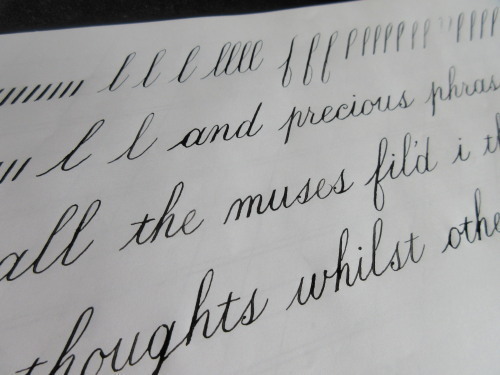 l l l llll f f f p p p p p p p p p p p p
l l and precious phras
all the muses fil'd i th
thoughts whilst othe